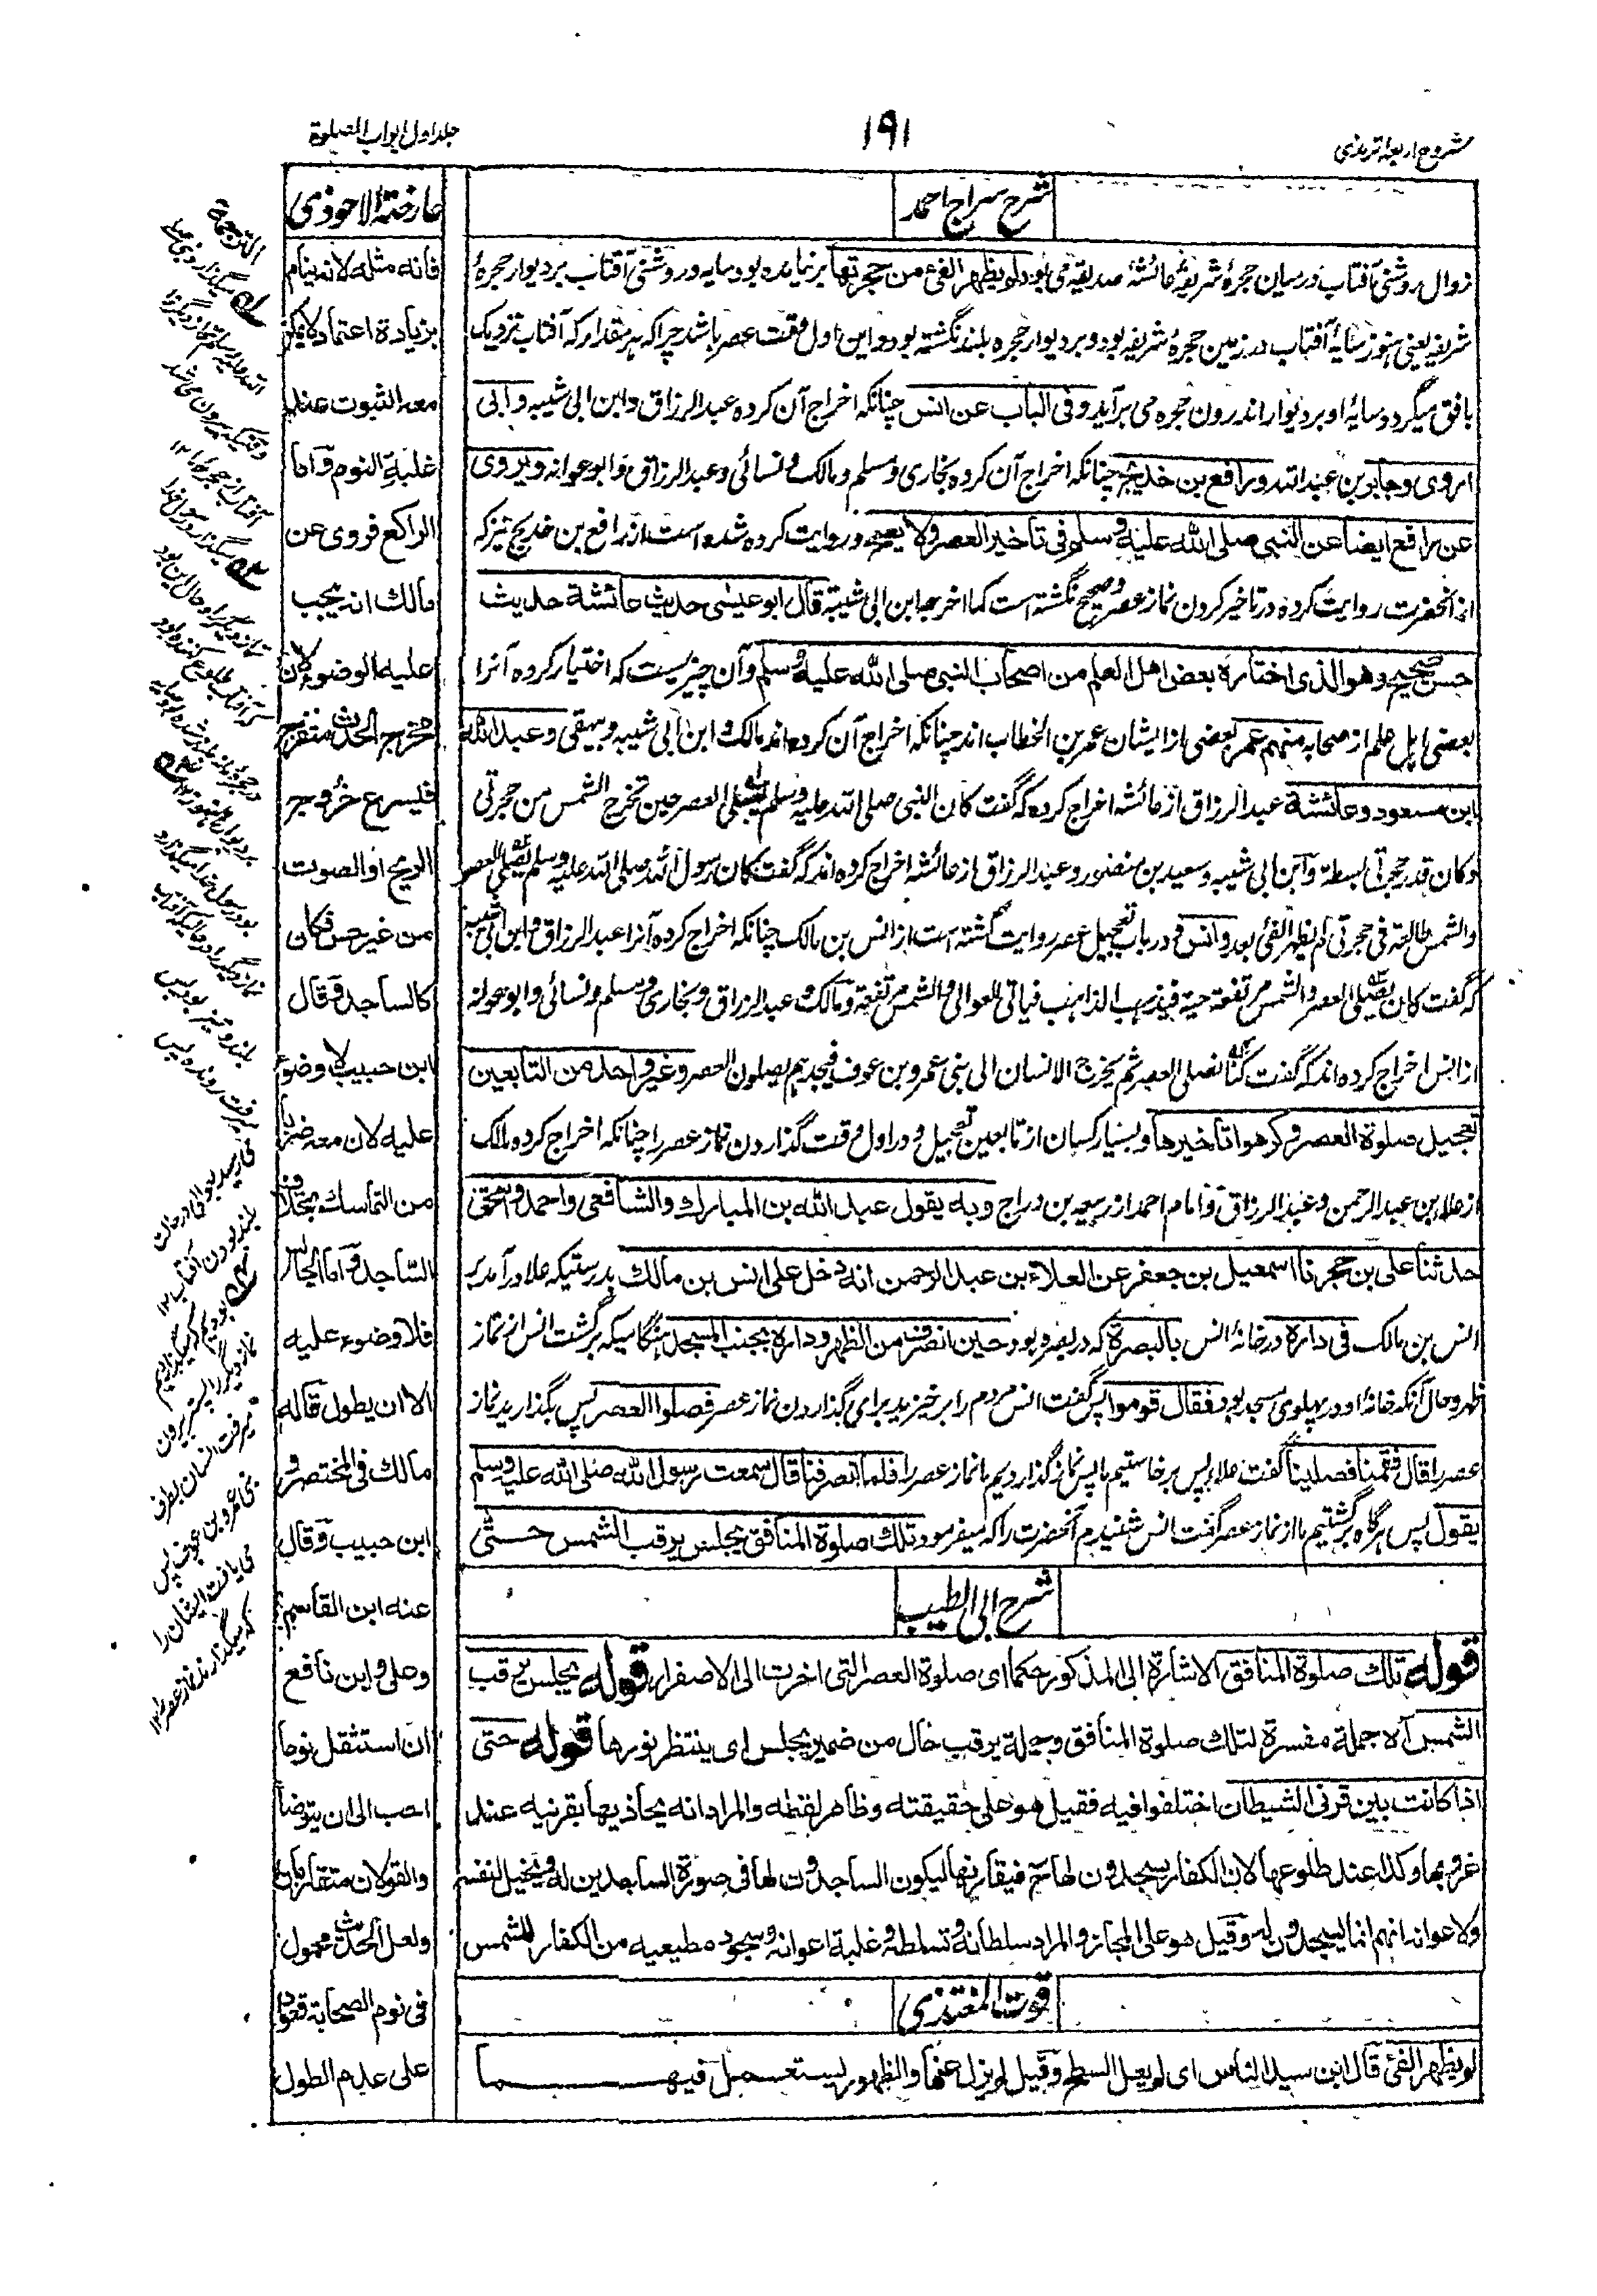 شروح اربعہ ترمذی
١٩١
جلد اول ابواب الصلوة
شرح سراج احمد
زوال روشنی آفتاب درمیان حجرۂ شریفۂ عائشۂ صدیقہ می بود لم یظهر الفئ من حجرتها برنیامده بود سایه و روشنی آفتاب بر دیوار حجرۂ
شریفه یعنی هنوز سایۂ آفتاب در زمین حجرۂ شریفه بود و بر دیوار حجره بلند نگشته بود و این اول وقت عصر باشد چراکه هر مقدار که آفتاب نزدیک
بافق میگردد سایۂ او بر دیوار اندرون حجره می برآید و فی الباب عن انس چنانکه اخراج آن کرده عبدالرزاق و ابن ابی شیبه و ابی
اروی و جابر بن عبدالله و رافع بن خدیج چنانکه اخراج آن کرده بخاری و مسلم و مالک و نسائی و عبدالرزاق و ابو عوانه و یروی
عن رافع ایضا عن النبی صلی الله علیه وسلم فی تاخیر العصر ولا یصح و روایت کرده شده است از رافع بن خدیج نیز که
از آنحضرت روایت کرده در تاخیر کردن نماز عصر و صحیح نگشته است کما اخرجها ابن ابی شیبة قال ابو عیسٰی حدیث عائشة حدیث
حسن صحیح وهو الذی اختاره بعض اهل العلم من اصحاب النبی صلی الله علیه وسلم و آن چیزیست که اختیار کرده آنرا
بعضی اهل علم از صحابه منهم عمر بعضی از ایشان عمر بن الخطاب اند چنانکه اخراج آن کرده اند مالک و ابن ابی شیبه و بیهقی و عبدالله
ابن مسعود و عائشة عبدالرزاق از عائشه اخراج کرده که گفت کان النبی صلی الله علیه وسلم یصلی العصر حین تخرج الشمس من حجرتی
وکان قدر حجرتی بسطة و ابن ابی شیبه و سعید بن منصور و عبدالرزاق از عائشه اخراج کرده اند که گفت کان رسول الله صلی الله علیه وسلم یصلی العصر
والشمس طالعة فی حجرتی لم یظهر الفئ بعد و انس و در باب تعجیل عصر روایت گشته است از انس بن مالک چنانکه اخراج کرده آنرا عبدالرزاق و ابن ابی شیبه
که گفت کان یصلی العصر والشمس مرتفعة حیة فیذهب الذاهب فیاتی العوالی والشمس مرتفعة و مالک و عبدالرزاق و بخاری و مسلم و نسائی و ابو عوانه
از انس اخراج کرده اند که گفت کنا نصلی العصر ثم یخرج الانسان الی بنی عمرو بن عوف فیجدهم یصلون العصر و غیر واحد من التابعین
تعجیل صلوة العصر و کرهوا تاخیرها و بسیار کسان از تابعین تعجیل و در اول وقت گذاردن نماز عصر را چنانکه اخراج کرده مالک
از علاء بن عبدالرحمن و عبدالرزاق و امام احمد از ربیعه بن دراج وبه یقول عبد الله بن المبارك والشافعی واحمد واسحق
حدثنا علی بن حجر نا اسمعیل بن جعفر عن العلاء بن عبد الرحمن انه دخل علی انس بن مالك بدرستیکه علاء درآمد بر
انس بن مالک فی داره در خانۂ انس بالبصرة که در بصره بود حین انصرف من الظهر و داره بجنب المسجد هنگامیکه برگشت انس از نماز
ظهر و حال آنکه خانۂ او در پهلوی مسجد بود فقال قوموا پس گفت انس مردم را برخیزید برای گذاردن نماز عصر فصلوا العصر پس بگذارید نماز
عصر را قال فقمنا فصلینا گفت علاء پس برخاستیم ما پس نماز گذاردیم ما نماز عصر را فلما انصرفنا قال سمعت رسول الله صلی الله علیه وسلم
یقول پس هرگاه برگشتیم ما از نماز عصر گفت انس شنیدم آنحضرت را که میفرمود تلك صلوة المنافق یجلس یرقب الشمس حتی
شرح ابی الطیب
قوله تلك صلوة المنافق الاشارة الی المذکور حکما ای صلوة العصر التی اخرت الی الاصفرار قوله یجلس یرقب
الشمس آلا جملة مفسرة لتلك صلوة المنافق وجملة یرقب حال من ضمیر یجلس ای ینتظر نورها قوله حتی
اذا کانت بین قرنی الشیطان اختلفوا فیه فقیل هو علی حقیقته وظاهر لفظه والمراد انه یحاذیها بقرنیه عند
غروبها وکذا عند طلوعها لان الکفار یسجدون لها ح فیقارنها لیکون الساجدون لها فی صورة الساجدین له ویخیل لنفسه
ولاعوانه انهم انما یسجدون له وقیل هو علی المجاز والمراد سلطانه وتسلطه وغلبة اعوانه وسجود مطیعیه من الکفار للشمس
قوت المغتذی
لم یظهر الفئ قال ابن سید الناس ای لم یعل السطح وقیل لم یزل عنها والظهور یستعمل فیهما
عارضة الاحوذی
فانه مثله لانه ینام
بزیادة اعتماد ولا یمکن
معه الثبوت عند
غلبة النوم واما
الراکع فروی عن
مالك انه یجب
علیه الوضوء لان
مخرج الحدث منفرج
فیسرع خروج
الریح او الصوت
من غیر حس فکان
کالساجد وقال
ابن حبیب لا وضوء
علیه لان معه ضربا
من التماسك بخلاف
الساجد واما الجالس
فلا وضوء علیه
الا ان یطول قاله
مالك فی المختصر و
ابن حبیب وقال
عنه ابن القاسم
وعلی وابن نافع
ان استثقل نوما
احب الی ان یتوضأ
والقولان متقاربان
ولعل الحدیث محمول
فی نوم الصحابة قعودا
علی عدم الطول
الترجمة